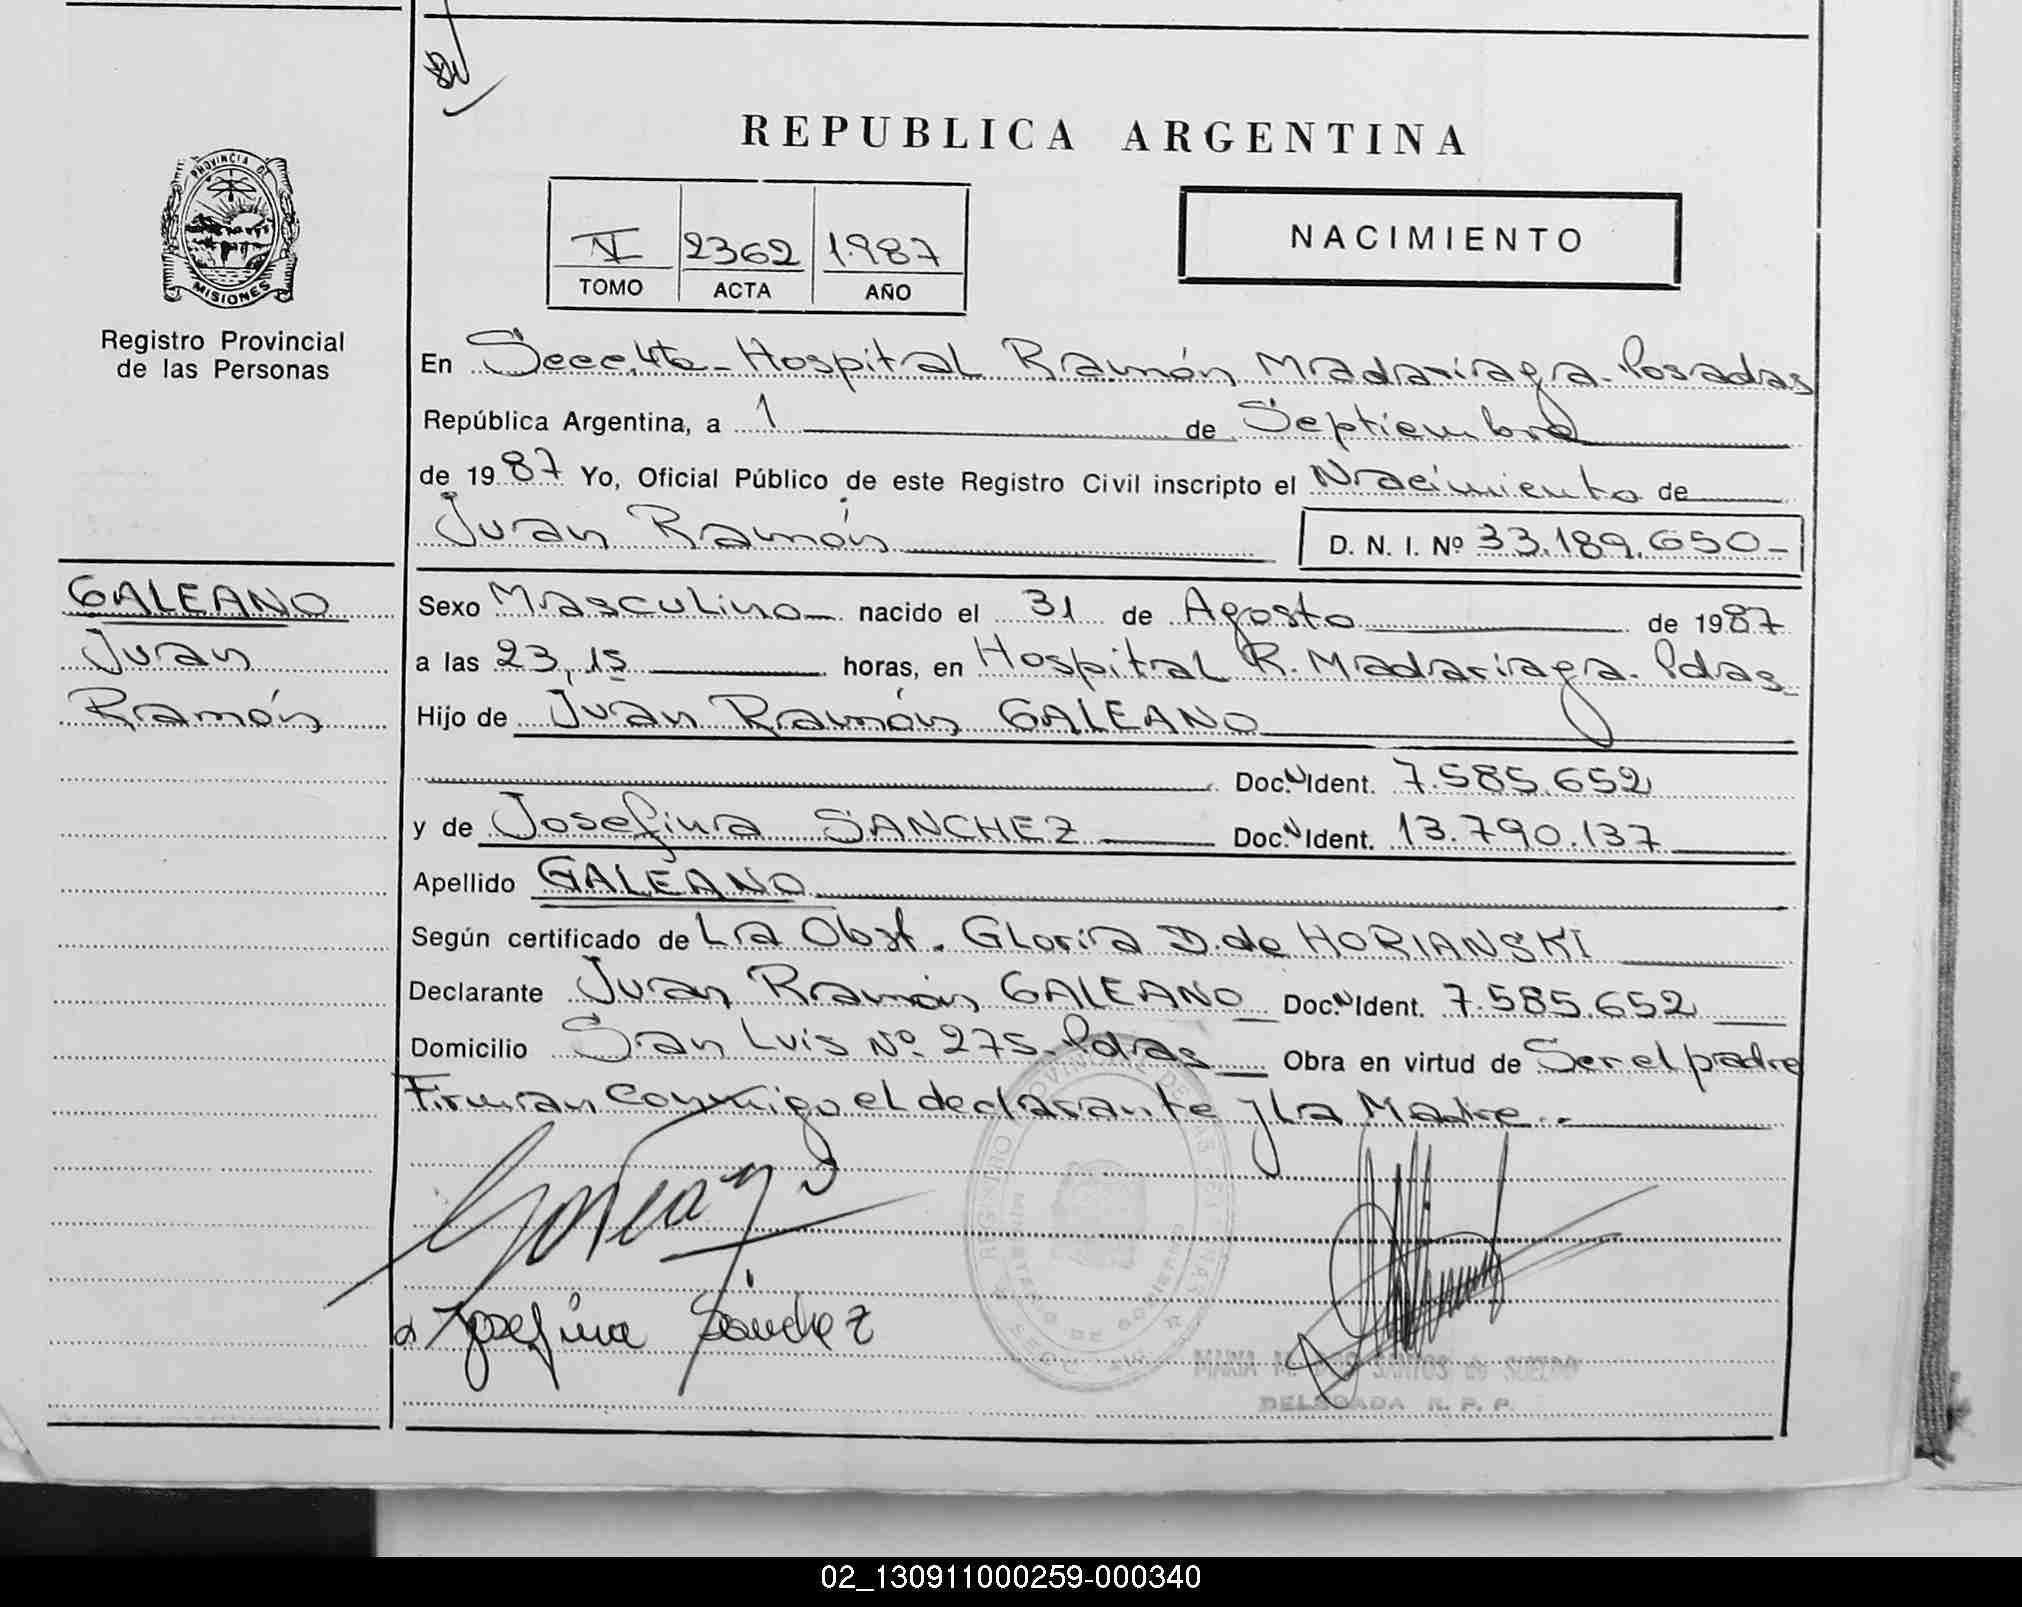 REPUBLICA ARGENTINA
PROVINCIA DE
MISIONES
Registro Provincial
de las Personas
1.987
2362
TOMO ACTA AÑO
NACIMIENTO
En Secc. 4ta - Hospital Ramón Madariaga - Posadas
República Argentina, a 1 de Septiembre
de 1987 Yo, Oficial Público de este Registro Civil inscripto el Nacimiento de
Juan Ramón D. N. I. Nº 33.189.650-
GALEANO
Juan
Ramón
Sexo Masculino nacido el 31 de Agosto de 1987
a las 23,15 horas, en Hospital R. Madariaga. Pdas
Hijo de Juan Ramón GALEANO
Doc. N Ident. 7.585.652
y de Josefina SANCHEZ Doc. N Ident. 13.790.137
Apellido GALEANO
Según certificado de La Obst. Gloria D. de HORIANSKI
Declarante Juan Ramón GALEANO Doc. N Ident. 7.585.652
Domicilio San Luis Nº 275 - Pdas Obra en virtud de Ser el padre
Firman conmigo el declarante y La Madre.-
Josefina Sánchez
DELEGADA R. P. P.
02_130911000259-000340